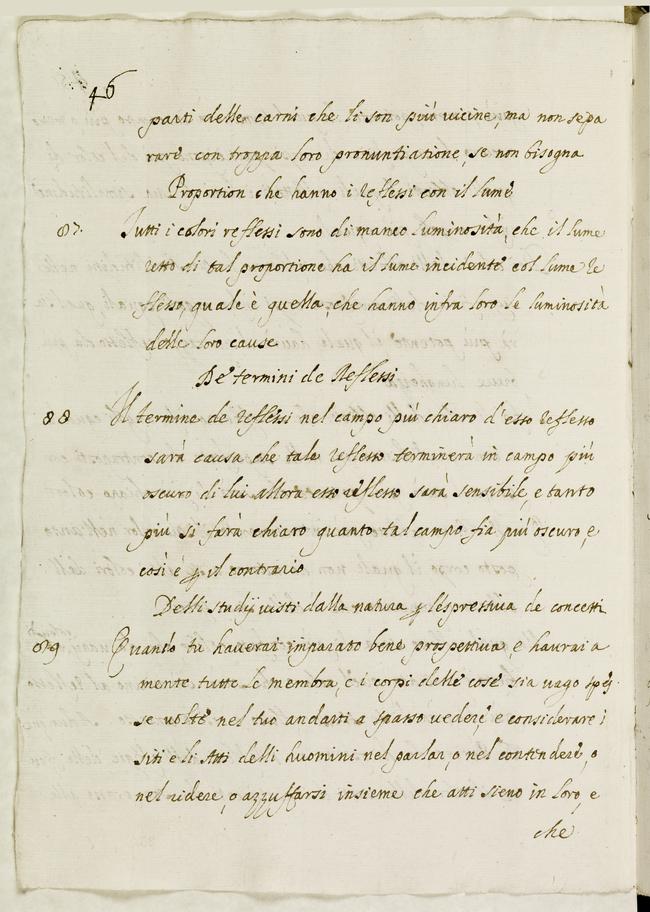 46
parti delle carni che li son più uicine, ma non sepa
rare con troppa loro pronuntiatione, se non bisogna
Proportion che hanno i reflessi con il lume
87. Tutti i colori reflessi sono di manco luminosità, che il lume
retto di tal proportione ha il lume incidente col lume re
flesso, quale è quella, che hanno infra loro le luminosità
delle loro cause
De termini de Reflessi
88 Il termine de reflessi nel campo più chiaro d'esso reflesso
sarà causa che tale reflesso terminerà in campo più
oscuro di lui allora esso reflesso sarà sensibile, e tanto
più si farà chiaro quanto tal campo fia più oscuro, e
così è ꝑ il contrario
Delli studij uisti dalla natura ꝑ l'esprettiua de concetti
89 Quando tu hauerai imparato bene prospettiua, e haurai a
mente tutte le membra, e i corpi delle cose sia uago spes
se uolte nel tuo andarti a spasso uedere, e considerare i
siti e li Atti delli huomini nel parlar, o nel contendere, o
nel ridere, o azzuffarsi insieme che atti sieno in loro, e
che